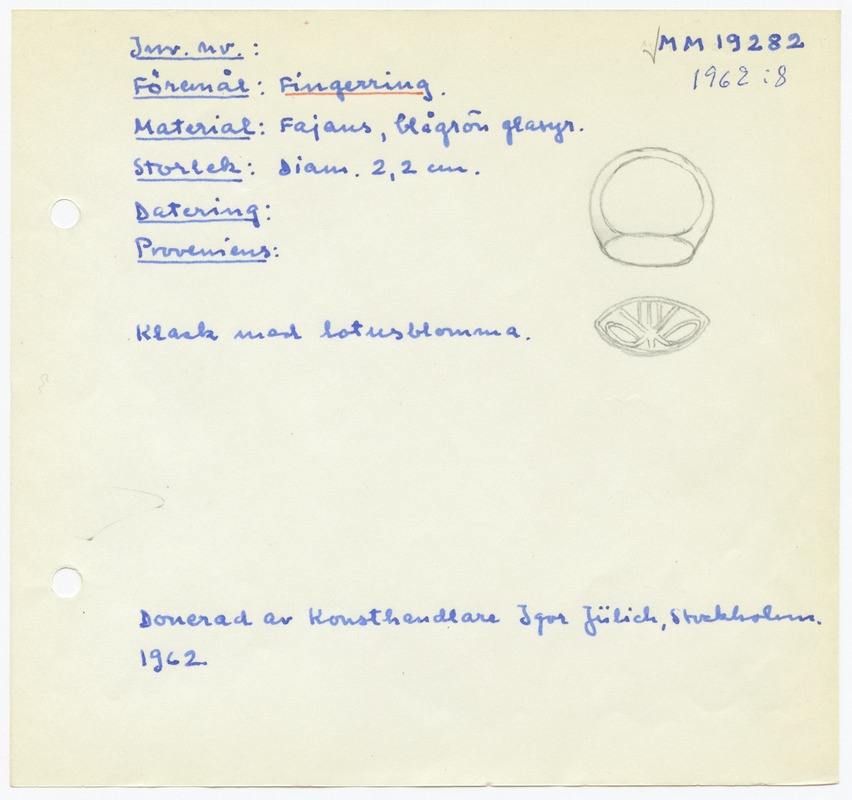 Inv. nr. : MM 19282
1962:8
Föremål: Fingerring.
Material: Fajans, blågrön glasyr.
Storlek: Diam. 2,2 cm.
Datering:
Proveniens:
Klack med lotusblomma.
Donerad av Konsthandlare Igor Jülich, Stockholm.
1962.